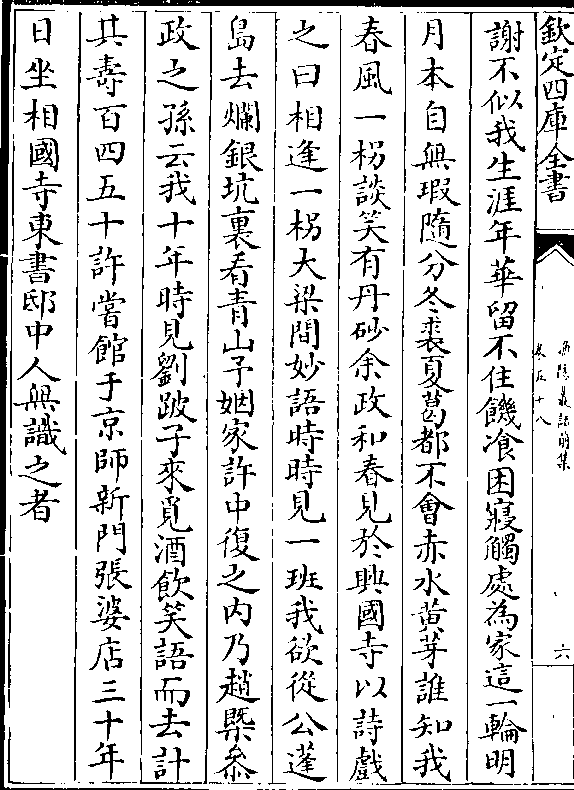 欽定四庫全書
漁隱叢話前集
卷五十八
六
謝不似我生涯年華留不住饑飡困寢觸處為家這一輪明
月本自無瑕隨分冬裘夏葛都不會赤水黄芽誰知我
春風一柺談笑有丹砂余政和春見於興國寺以詩戲
之曰相逢一柺大梁間妙語時時見一班我欲從公蓬
島去爛銀坑裏看青山子姻家許中復之内乃趙㮣叅
政之孫云我十年時見劉跛子來覓酒飲笑語而去計
其壽百四五十許嘗館于京師新門張婆店三十年
日坐相國寺東書邸中人無識之者